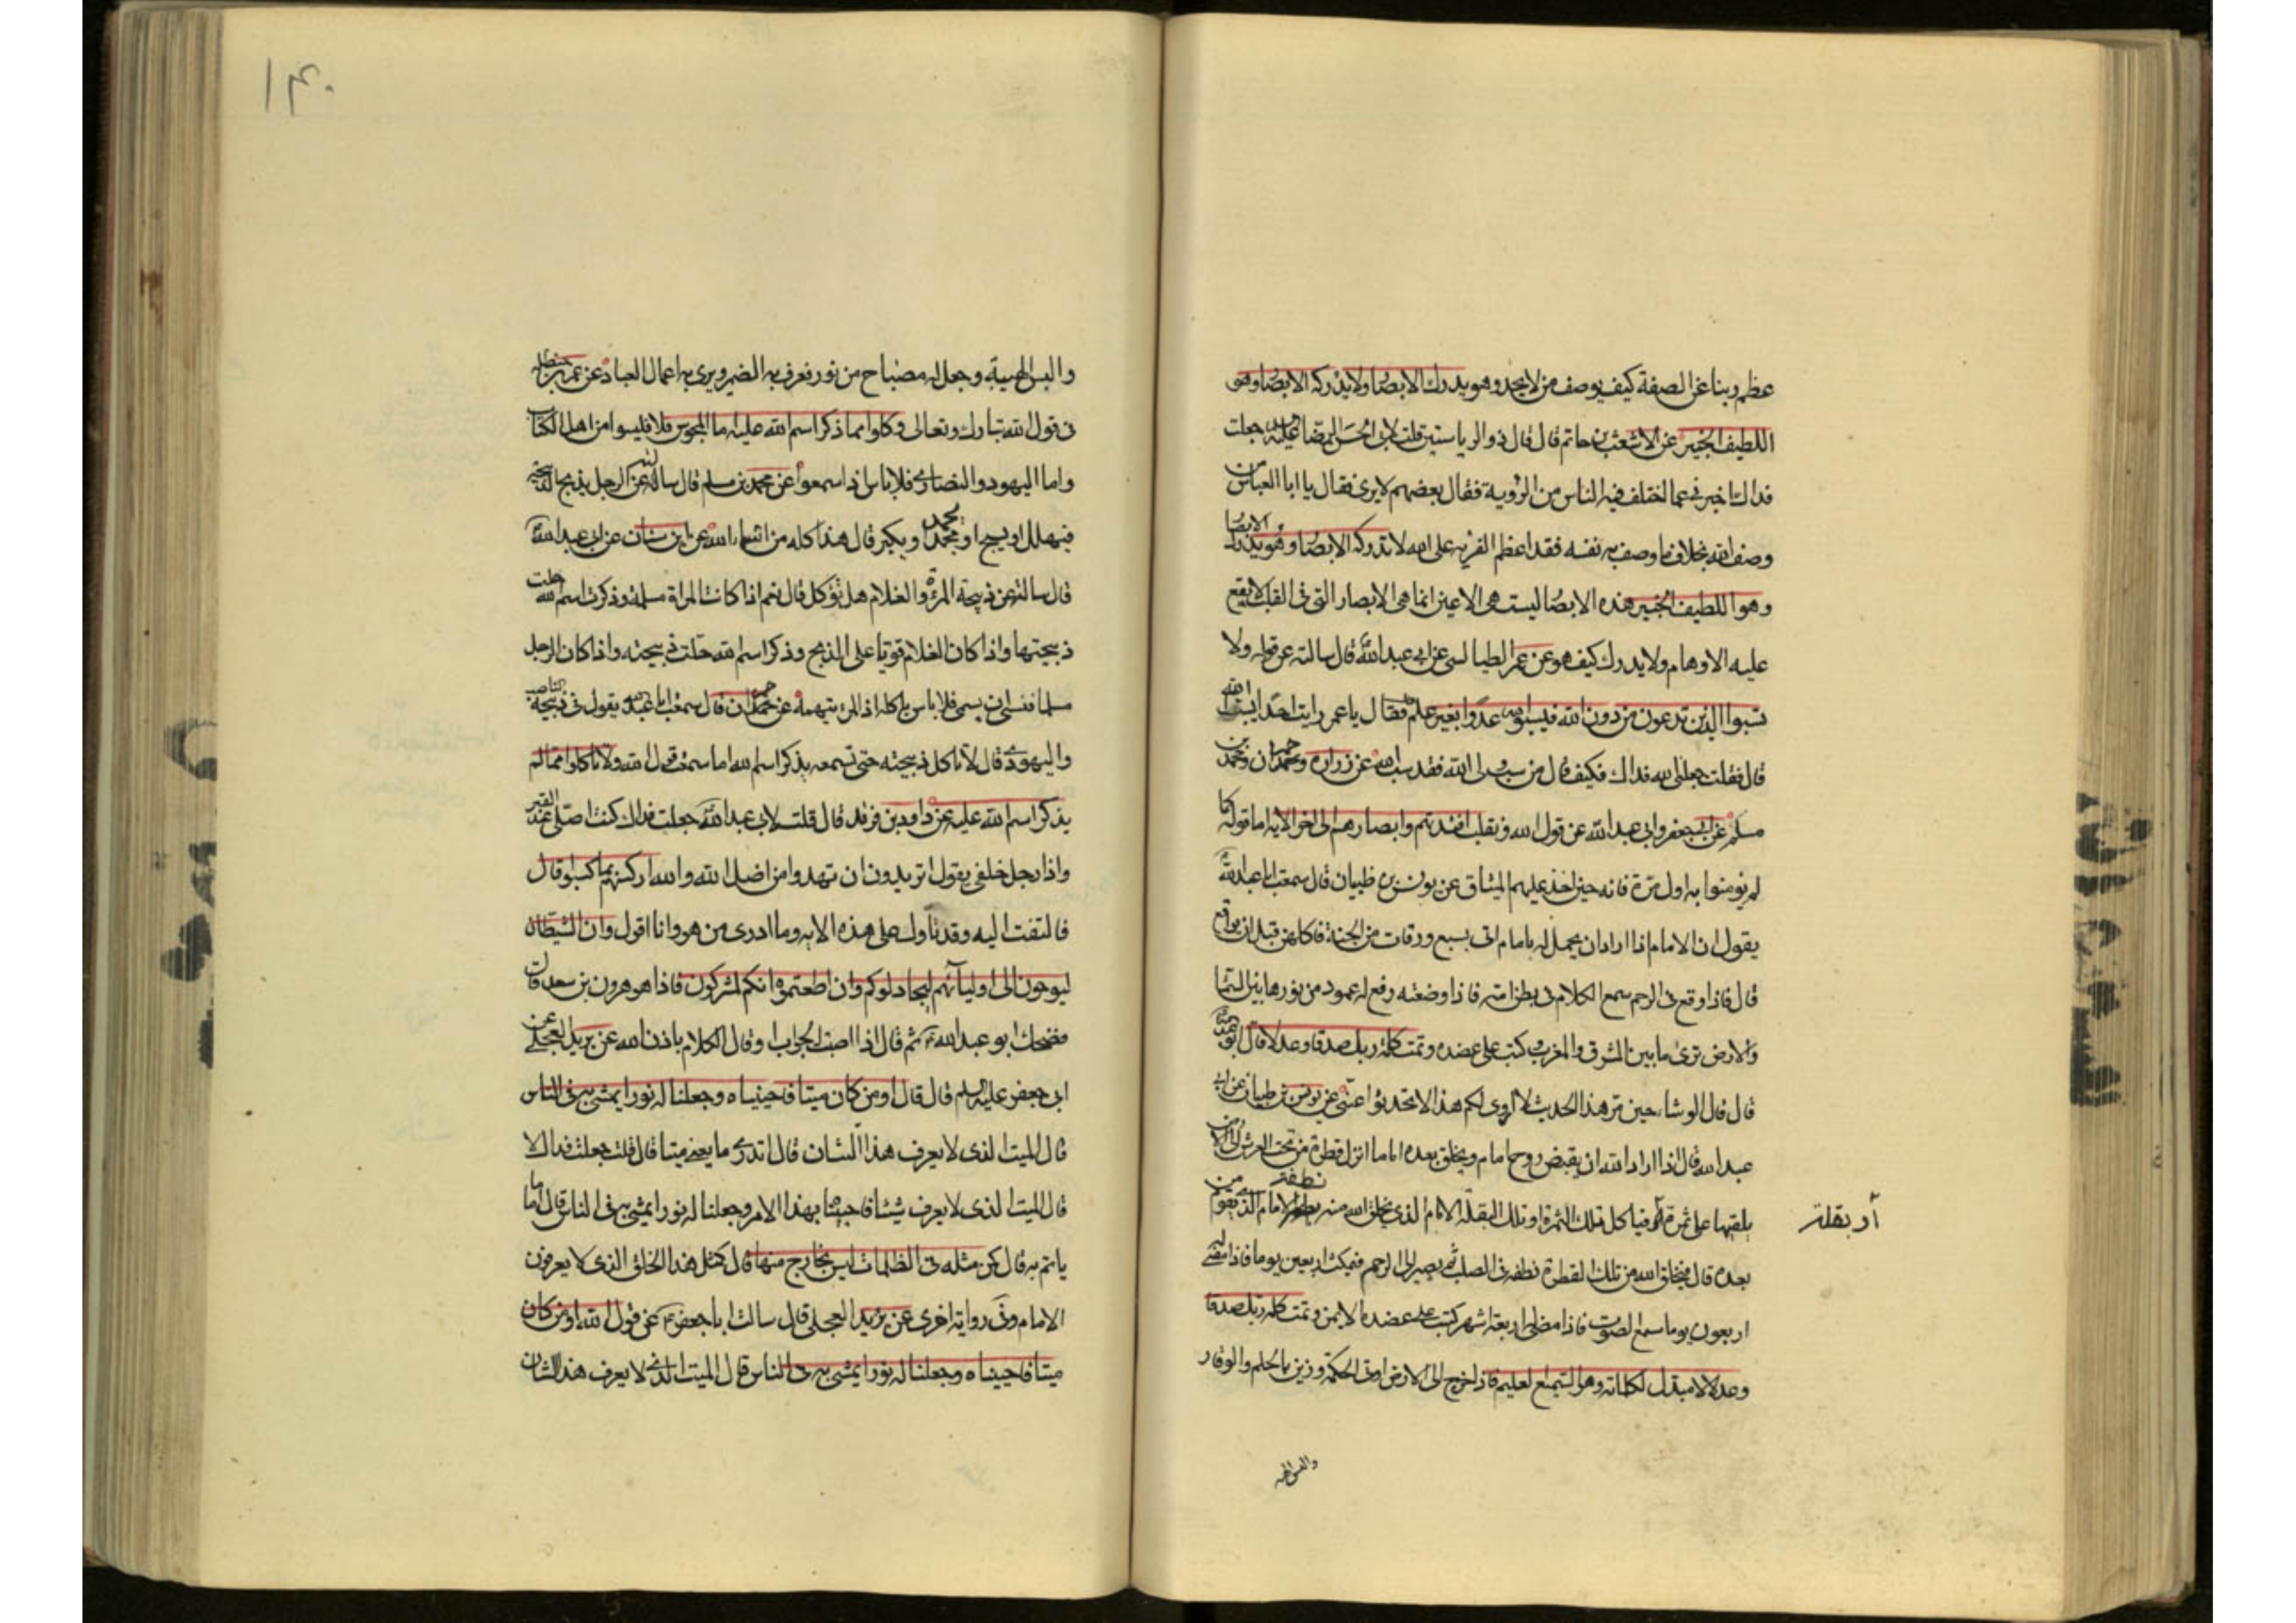 عظم ربنا عن الصفة كيف يوصف من لا يحد وهو يدرك الابصار ولا تدركه الابصار وهو
اللطيف الخبير عن الاشعث بن حاتم قال قال ذو الرياستين قلت لابى الحسن الرضا عليه السلام جعلت
فداك اخبرنى عما اختلف فيه الناس من الرؤية فقال بعضهم لا يرى فقال يا ابا العباس من
وصف الله بخلاف ما وصف به نفسه فقد اعظم الفرية على الله لا تدركه الابصار وهو يدرك الابصار
وهو اللطيف الخبير هذه الابصار ليست هى الاعين انما هى الابصار التى فى القلب لا يقع
عليه الاوهام ولا يدرك كيف هو عن عمر الطيالسى عن ابى عبد الله قال سالته عن قوله ولا
تسبوا الذين تدعون من دون الله فيسبوا الله عدوا بغير علم فقال يا عمر رايت احدا يسب الله
قال فقلت جعلنى الله فداك فكيف قال من سب ولى الله فقد سب الله عن زرارة وحمران ومحمد بن
مسلم عن ابى جعفر وابى عبد الله عن قول الله ونقلب افئدتهم وابصارهم الى اخر الاية اما قوله كما
لم يؤمنوا به اول مرة فانه حين اخذ عليهم الميثاق عن يونس بن ظبيان قال سمعت ابا عبد الله
يقول ان الامام اذا اراد ان يحمل له بامام اتى بسبع ورقات من الجنة فاكلهن قبل ان يواقع
قال فاذا وقع فى الرحم سمع الكلام فى بطن امه فاذا وضعته رفع له عمود من نور ما بين السما
والارض ترى ما بين المشرق والمغرب وكتب على عضده وتمت كلمة ربك صدقا وعدلا قال ابو عبد الله
قال قال الوشاء حين مر هذا الحديث لا اروى لكم هذا لا تحدثوا عنى عن يونس بن ظبيان عن ابى
عبد الله قال اذا اراد الله ان يقبض روح امام ويخلق بعده اماما انزل قطرة من تحت العرش الى الارض
يلقيها على ثمرة فياكل تلك الثمرة او تلك البقلة الامام الذى يخلق الله منه نطفة الامام الذى يقوم من
او بقلة
بعده قال فيخلق الله من تلك القطرة نطفة فى الصلب ثم يصير الى الرحم فيمكث اربعين يوما فاذا مضى له
اربعون يوما سمع الصوت فاذا مضى له اربعة اشهر كتب على عضده الايمن وتمت كلمة ربك صدقا
وعدلا لا مبدل لكلماته وهو السميع العليم فاذا خرج الى الارض اوتى الحكمة وزين بالحلم والوقار
والبس الهيبة
١٤٠
والبس الهيبة وجعل له مصباح من نور فعرف به الضمير ويرى به اعمال العباد عن عمر بن حنظلة
فى قول الله تبارك وتعالى فكلوا مما ذكر اسم الله عليه اما المجوس فلا فليسوا من اهل الكتاب
واما اليهود والنصارى فلا باس اذا سمعوا عن محمد بن مسلم قال سالته عن الرجل يذبح الذبيحة
فيهلل او يسبح او يحمد او يكبر قال هذا كله من اسماء الله عن ابن سنان عن ابى عبد الله
قال سالته عن ذبيحة المرأة والغلام هل تؤكل قال نعم اذا كانت المراة مسلمة وذكرت اسم الله حلت
ذبيحتها واذا كان الغلام قويا على الذبح وذكر اسم الله حلت ذبيحته واذا كان الرجل
مسلما فنسى ان يسمى فلا باس باكله اذا لم تتهمه عن حمران قال سمعت ابا عبد الله يقول فى ذبيحة الناصب
واليهودى قال لا تاكل ذبيحته حتى تسمعه يذكر اسم الله اما سمعت قول الله ولا تاكلوا مما لم
يذكر اسم الله عليه عن داود بن فرقد قال قلت لابى عبد الله جعلت فداك كنت اصلى عند القبر
واذا رجل خلفى يقول اتريدون ان تهدوا من اضل الله والله اركسهم بما كسبوا قال
فالتفت اليه وقد تاول على هذه الاية وما ادرى من هو وانا اقول وان الشياطين
ليوحون الى اوليائهم ليجادلوكم وان اطعتموهم انكم لمشركون فاذا هو هرون بن سعد قال
فضحك ابو عبد الله ثم قال اذا اصبت الجواب وقال الكلام باذن الله عن بريد العجلى عن
ابى جعفر عليه السلم قال قال اومن كان ميتا فاحييناه وجعلنا له نورا يمشى به فى الناس
قال الميت الذى لا يعرف هذا الشان قال اتدرى ما يعنى ميتا قال قلت جعلت فداك لا
قال الميت الذى لا يعرف شيئا فاحييناه بهذا الامر وجعلنا له نورا يمشى به فى الناس قال اماما
ياتم به قال كمن مثله فى الظلمات ليس بخارج منها قال كمثل هذا الخلق الذى لا يعرفون
الامام وفى رواية اخرى عن بريد العجلى قال سالت ابا جعفر عن قول الله اومن كان
ميتا فاحييناه وجعلنا له نورا يمشى به فى الناس قال الميت الذى لا يعرف هذا الشان